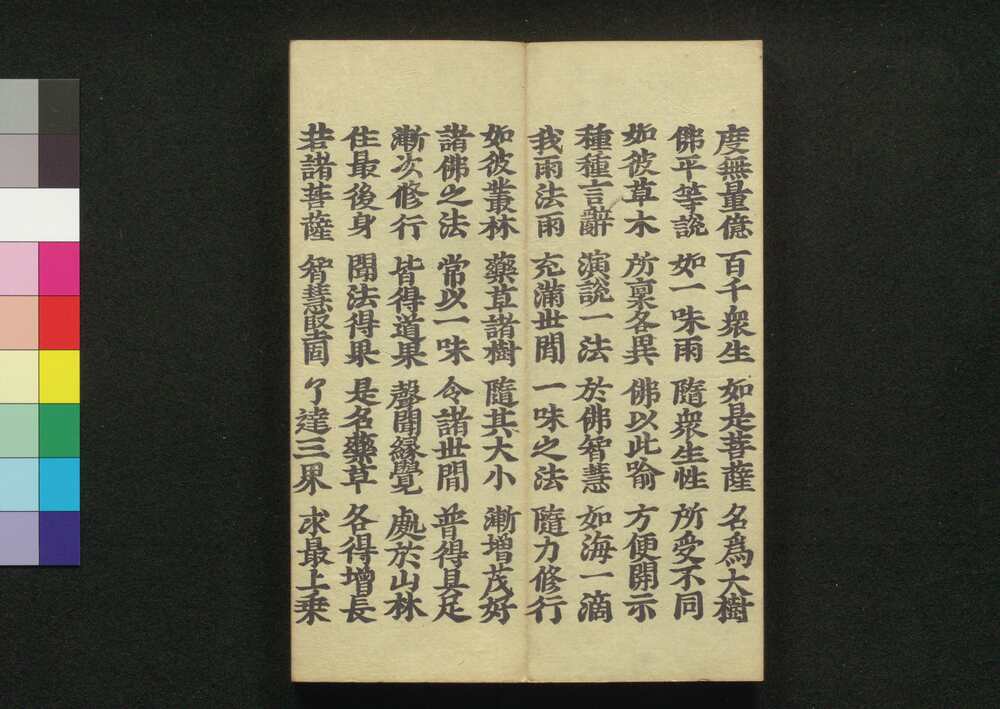 度無量億 百千衆生 如是菩薩 名爲大樹
佛平等説 如一味雨 隨衆生性 所受不同
如彼草木 所稟各異 佛以此喩 方便開示
種種言辭 演説一法 於佛智慧 如海一滴
我雨法雨 充滿世間 一味之法 隨力修行
如彼叢林 藥草諸樹 隨其大小 漸增茂好
諸佛之法 常以一味 令諸世間 普得具足
漸次修行 皆得道果 聲聞緣覺 處於山林
住最後身 聞法得果 是名藥草 各得增長
若諸菩薩 智慧堅固 了達三界 求最上乘